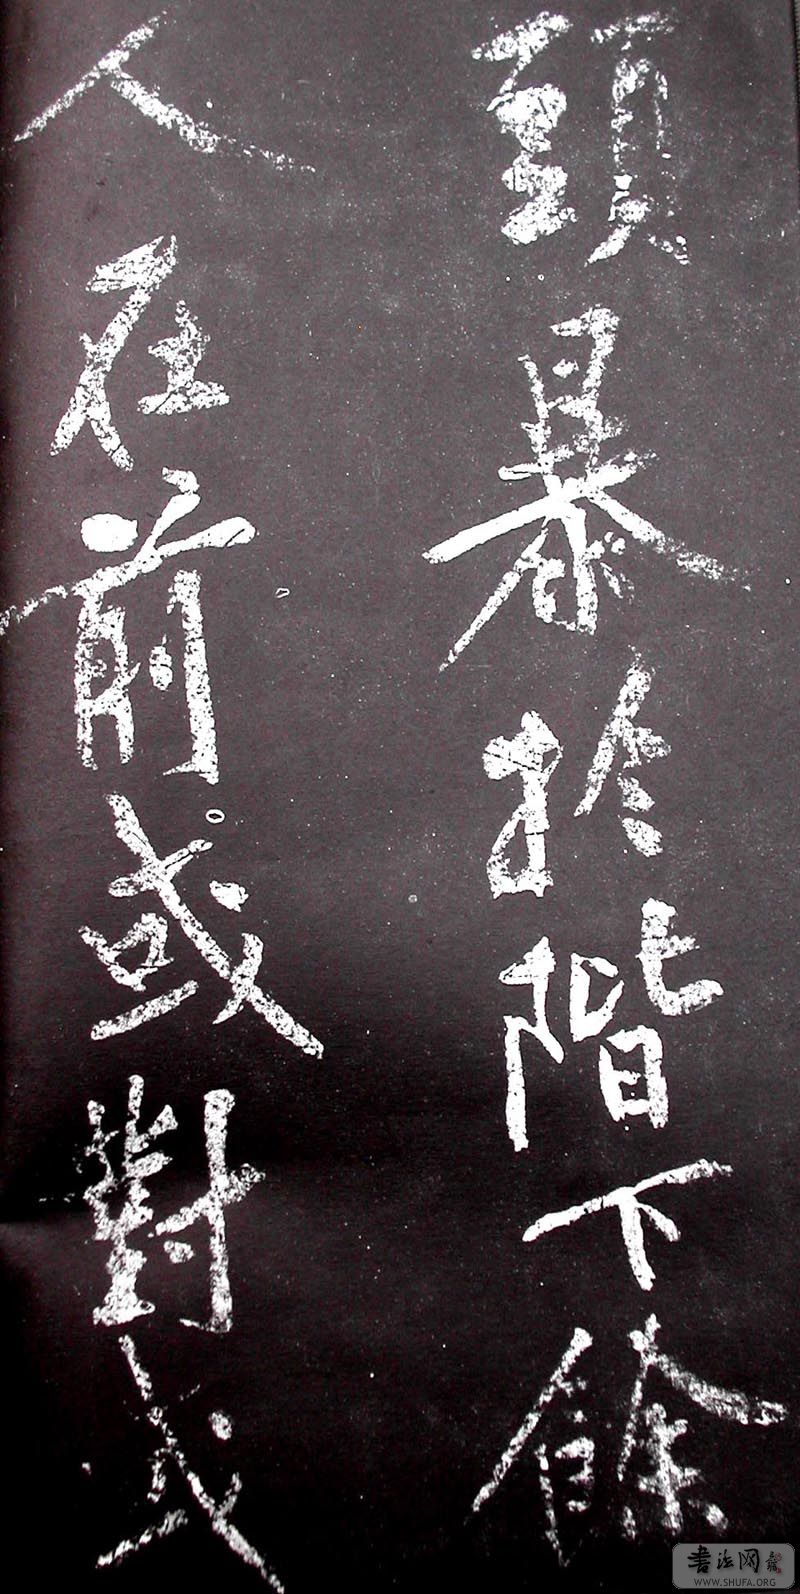 頭暴於階下餘
人在前或對或
書法网
WWW.SHUFA.ORG